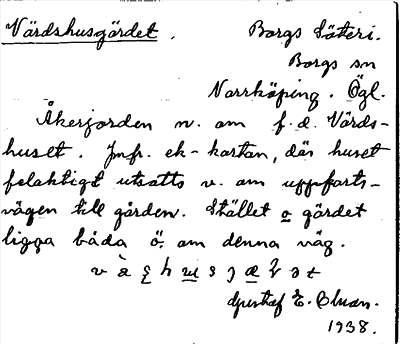 Värdshusgärdet.
Borgs Säteri.
Borgs sn
Norrköping. Ögl.
Åkerjorden n. om f.d. Värds-
huset. Jmfr. ek-kartan, där huset
felaktigt utsatts v. om uppfarts-
vägen till gården. Stället o gärdet
ligga båda ö. om denna väg.
Gustaf E. Cluan.
1938.